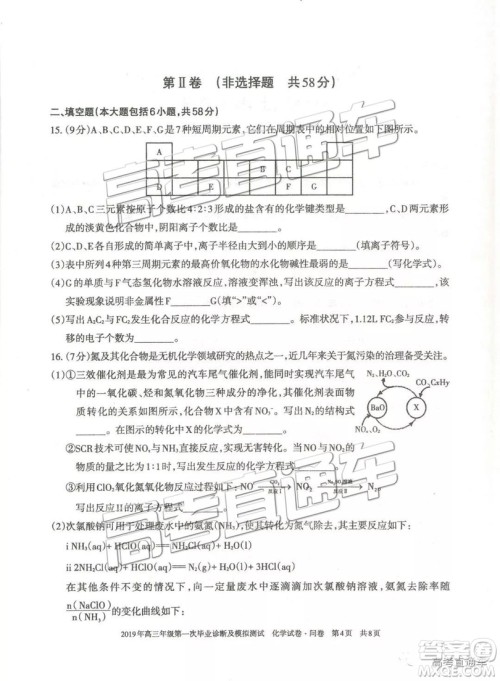 第Ⅱ卷 (非选择题 共58分)
二、填空题(本大题包括6小题,共58分)
15.(9分)A、B、C、D、E、F、G是7种短周期元素,它们在周期表中的相对位置如下图所示。
A
B C
D E F G
(1)A、B、C三元素按原子个数比4∶2∶3形成的盐含有的化学键类型是
成的淡黄色化合物中,阴阳离子个数比为
(2)B、C、D、E各自形成的简单离子中,离子半径由大到小为 (写离子符号)。
(3)表中所列4种第三周期元素的最高价氧化物的水化物碱性最弱的是 (写化学式)。
(4)G的单质与F气态氢化物水溶液反应,溶液变浑浊,写出该反应的离子方程式
该实验现象说明非金属性F G(填“>”或“<”)。
(5)写出A₂C₂与FC₂发生化合反应的化学方程式 。标准状况下,1.12L FC₂参与
反应时转移的电子数为 。
16.(7分)氮及其化合物是无机化学领域研究的热点之一,近几年来关于氮污染的治理备受关注。
(1)①三效催化剂是最为常见的汽车尾气催化剂,能同时实现汽车尾气中
的一氧化碳、烃和氮氧化物的净化,其催化剂表面物质转化的
关系如右图所示,化合物X中含有NO₃⁻。写出X的化学
式 。在图示的转化中X转化为N₂的化学方程式
N₂,H₂O,CO₂
CO,CxHy
BaO
X
NO,O₂
②SCR技术可使NOₓ与NH₃直接反应,实现无害转化。当NO与NO₂
的物质的量比为1∶1时,写出发生反应的化学方程式 。
③利用ClO₂氧化氮氧化物反应过程如下:NO —ClO₂ 反应Ⅰ→ NO₂ —Na₂SO₃水溶液 反应Ⅱ→ N₂
(2)次氯酸钠可用于处理废水中的氨氮(NH₃),使其转化为氮气除去,其主要反应如下:
i NH₃(aq)+HClO(aq)═NH₂Cl(aq)+H₂O(l)
ii 2NH₂Cl(aq)+HClO(aq)═N₂(g)+H₂O(l)+3HCl(aq)
在其他条件不变的情况下,向一定量废水中逐滴滴加次氯酸钠溶液,氨氮去除率随
n(NaClO)/n(NH₃)的变化曲线如下:
2019年高三年级第一次毕业诊断及模拟测试 化学试卷·问卷 第4页 共8页
高考直通车
高考直通车
高考直通车
高考直通车